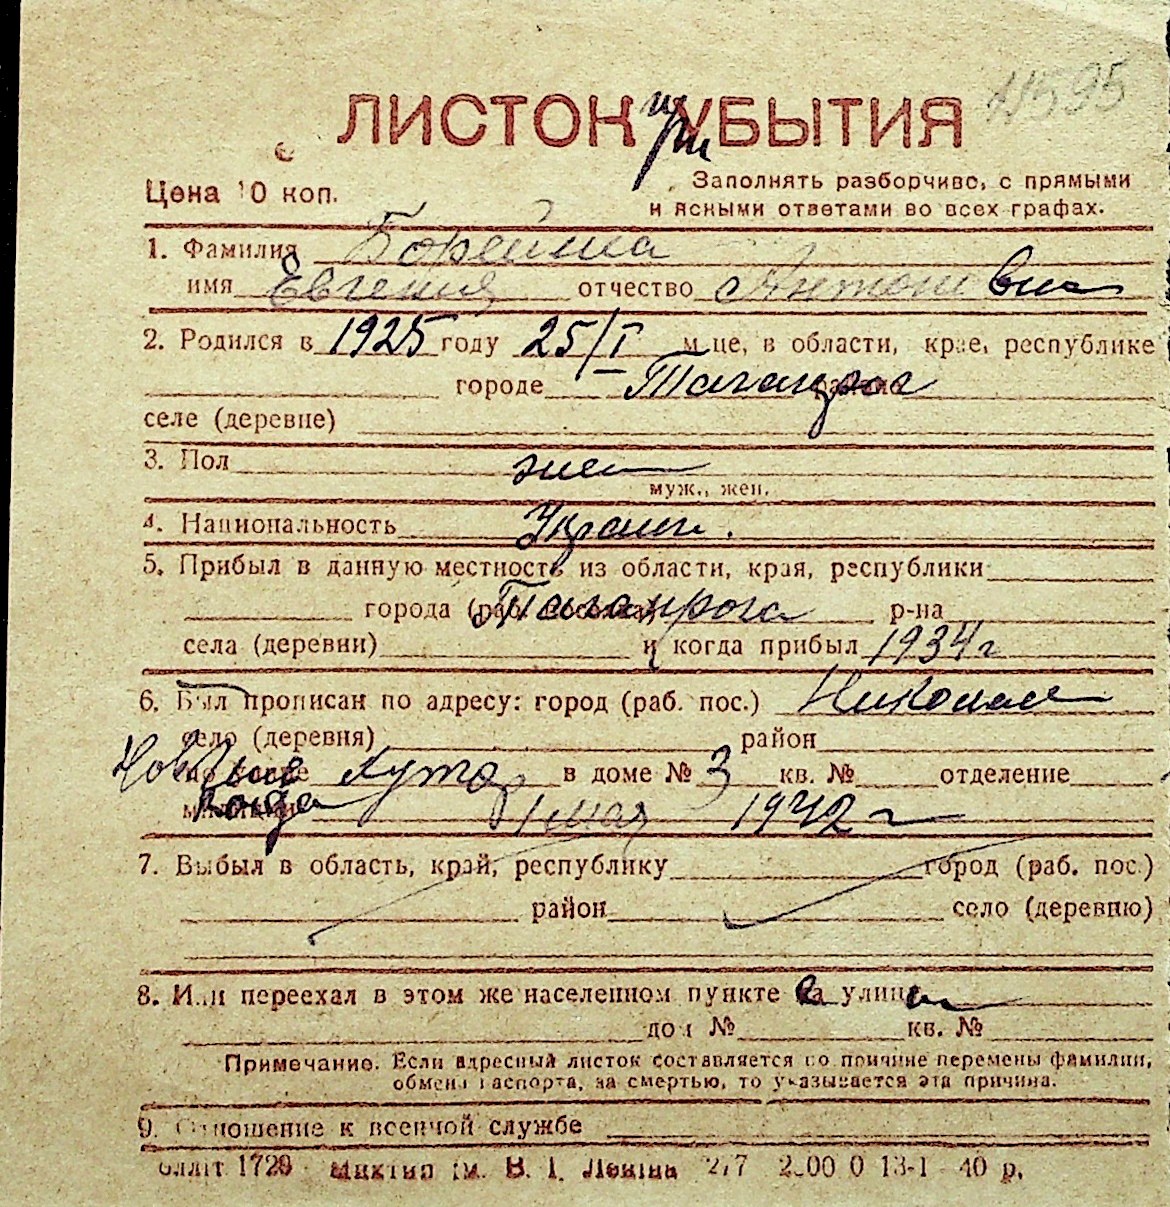 ЛИСТОК при УБЫТИЯ
Цена 10 коп.
Заполнять разборчиво, с прямыми
и ясными ответами во всех графах.
1. Фамилия Борейша
имя Евгения отчество Антоновна
2. Родился в 1925 году 25/I м-це, в области, крае, республике
городе Таганрог
селе (деревне)
3. Пол жен
муж., жен.
4. Национальность Украин.
5. Прибыл в данную местность из области, края, республики
города (раб. поселка) Таганрога р-на
села (деревни) и когда прибыл 1934 г
6. Был прописан по адресу: город (раб. пос.) Николаев
село (деревня) район
хутор в доме № 3 кв. № отделение
милиции когда 1 мая 1942 г
7. Выбыл в область, край, республику город (раб. пос.)
район село (деревню)
8. Или переехал в этом же населенном пункте на улицу
дом № кв. №
Примечание. Если адресный листок составляется по причине перемены фамилии,
обмена паспорта, за смертью, то указывается эта причина.
9. Отношение к военной службе
1729 В. І. Леніна 2/7 13-1 40 р.